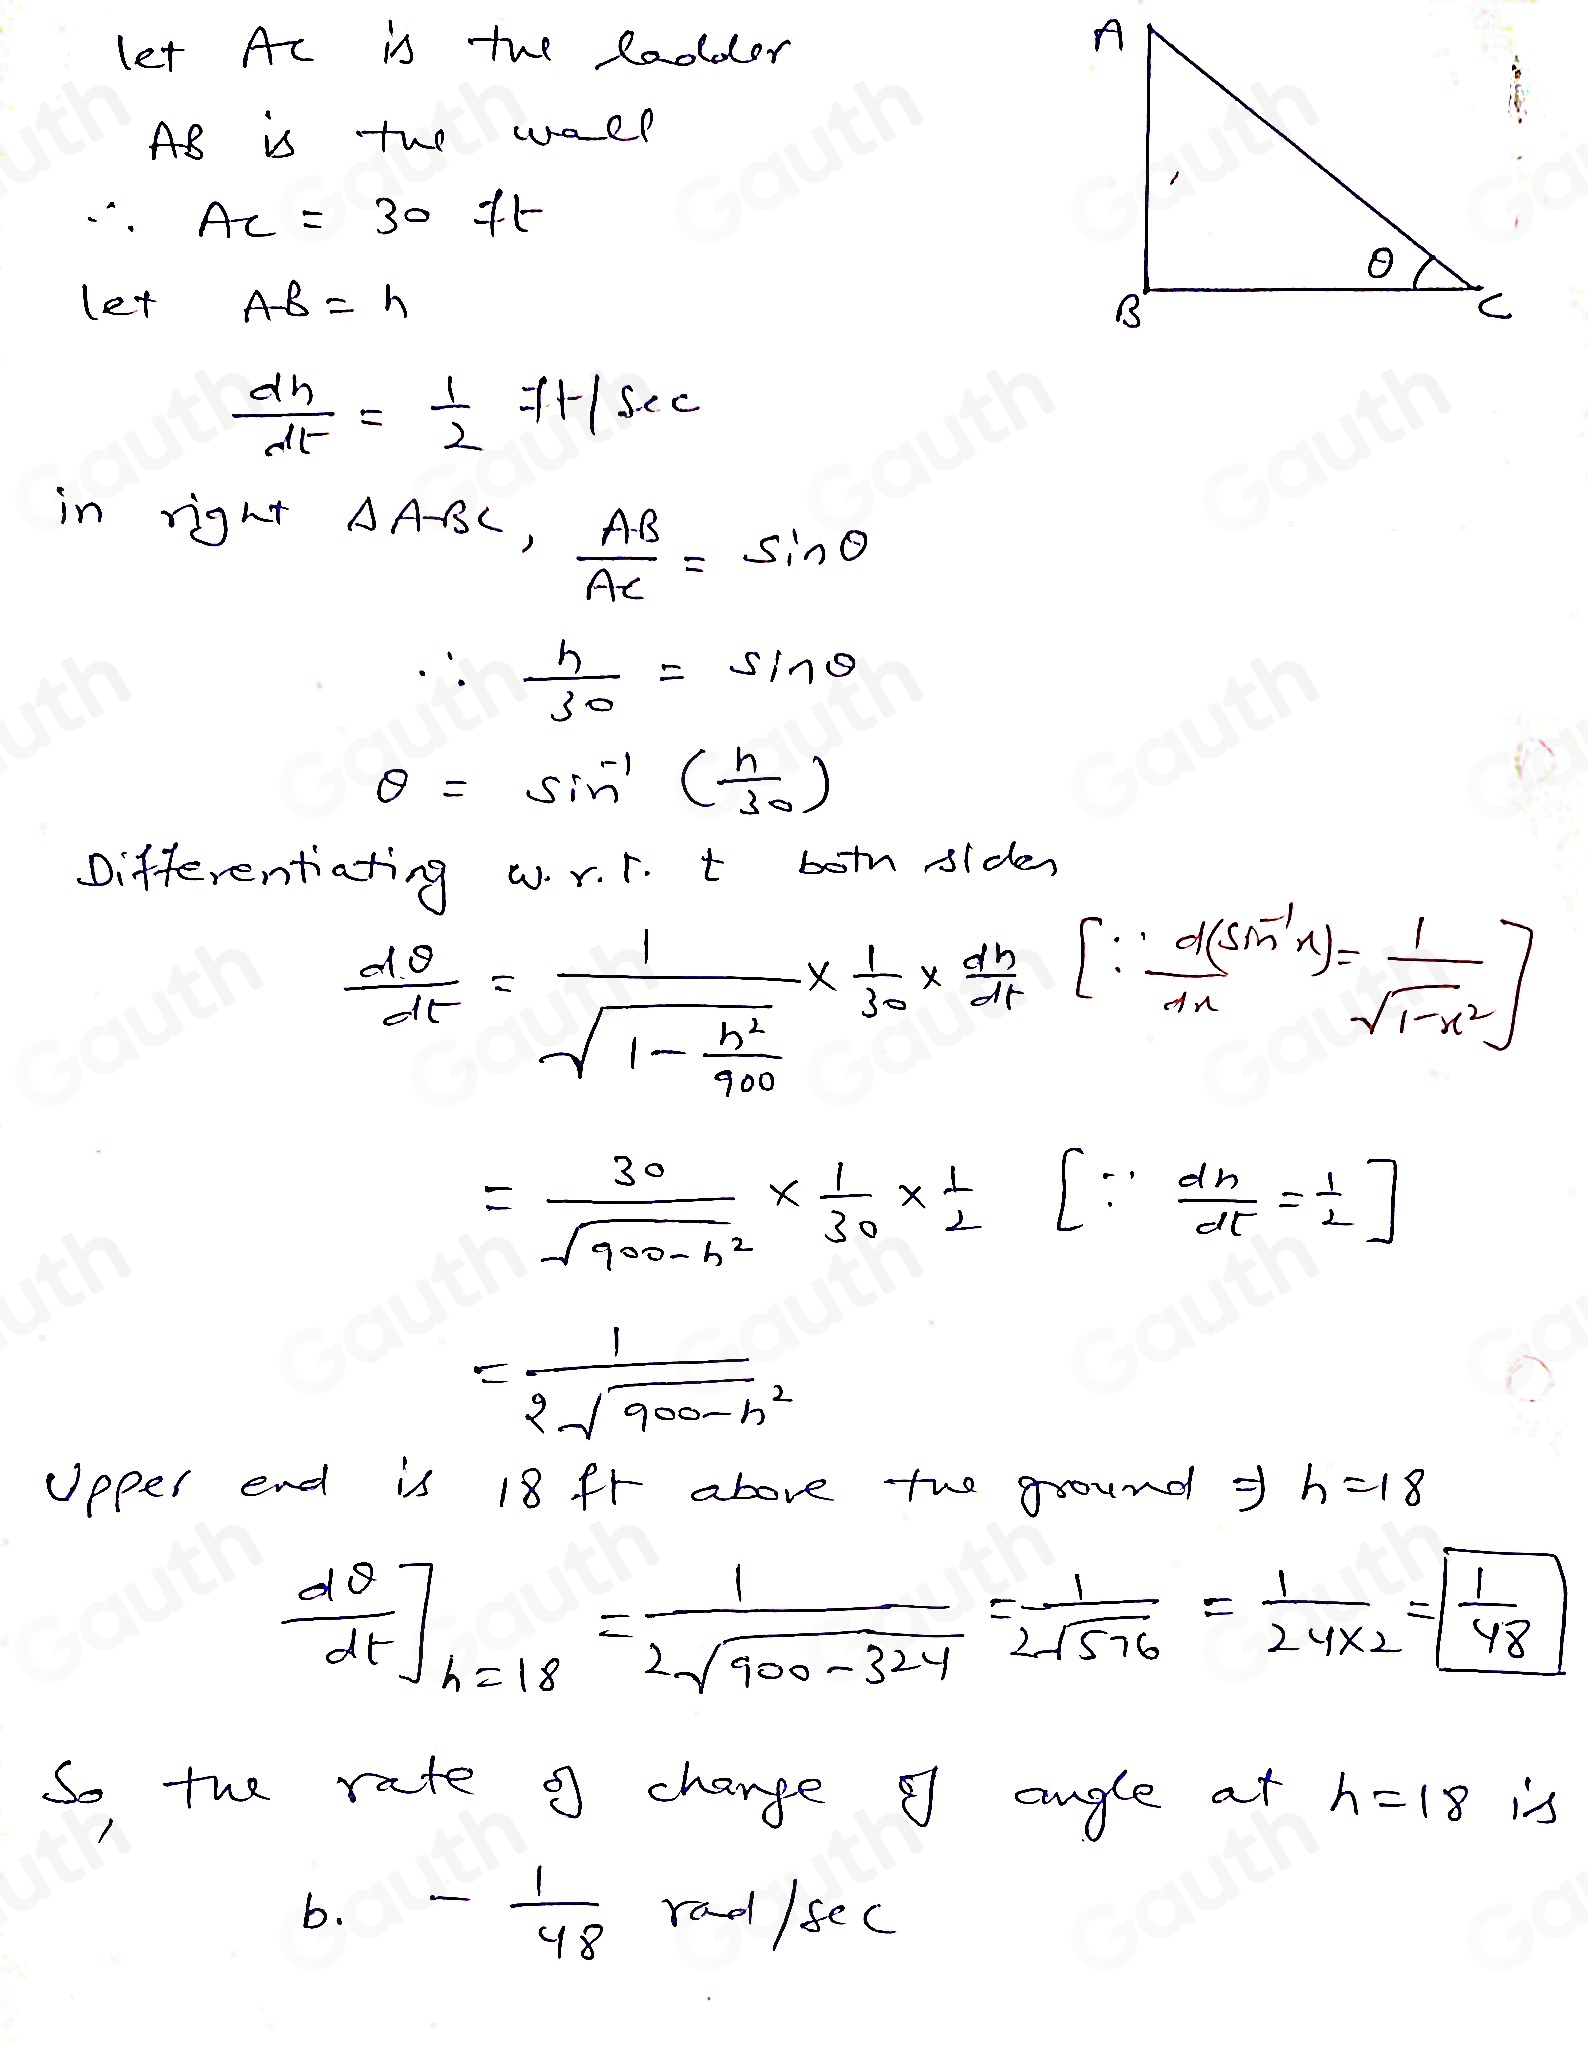 let AC is the ladder
AB is the wall
∴ AC = 30 ft
let AB = h
A
B
C
θ
dh/dt = 1/2 ft/sec
in right ΔABC, AB/AC = sinθ
∴ h/30 = sinθ
θ = sin⁻¹ (h/30)
Differentiating w.r.t. t both sides
dθ/dt = 1/√(1 - h²/900) × 1/30 × dh/dt [∵ d(sin⁻¹x)/dx = 1/√(1-x²)]
= 30/√(900-h²) × 1/30 × 1/2 [∵ dh/dt = 1/2]
= 1/2√(900-h²)
Upper end is 18 ft above the ground ⇒ h=18
dθ/dt]h=18 = 1/2√(900-324) = 1/2√576 = 1/24×2 = 1/48
So, the rate of change of angle at h=18 is
b. - 1/48 rad/sec
Gauth